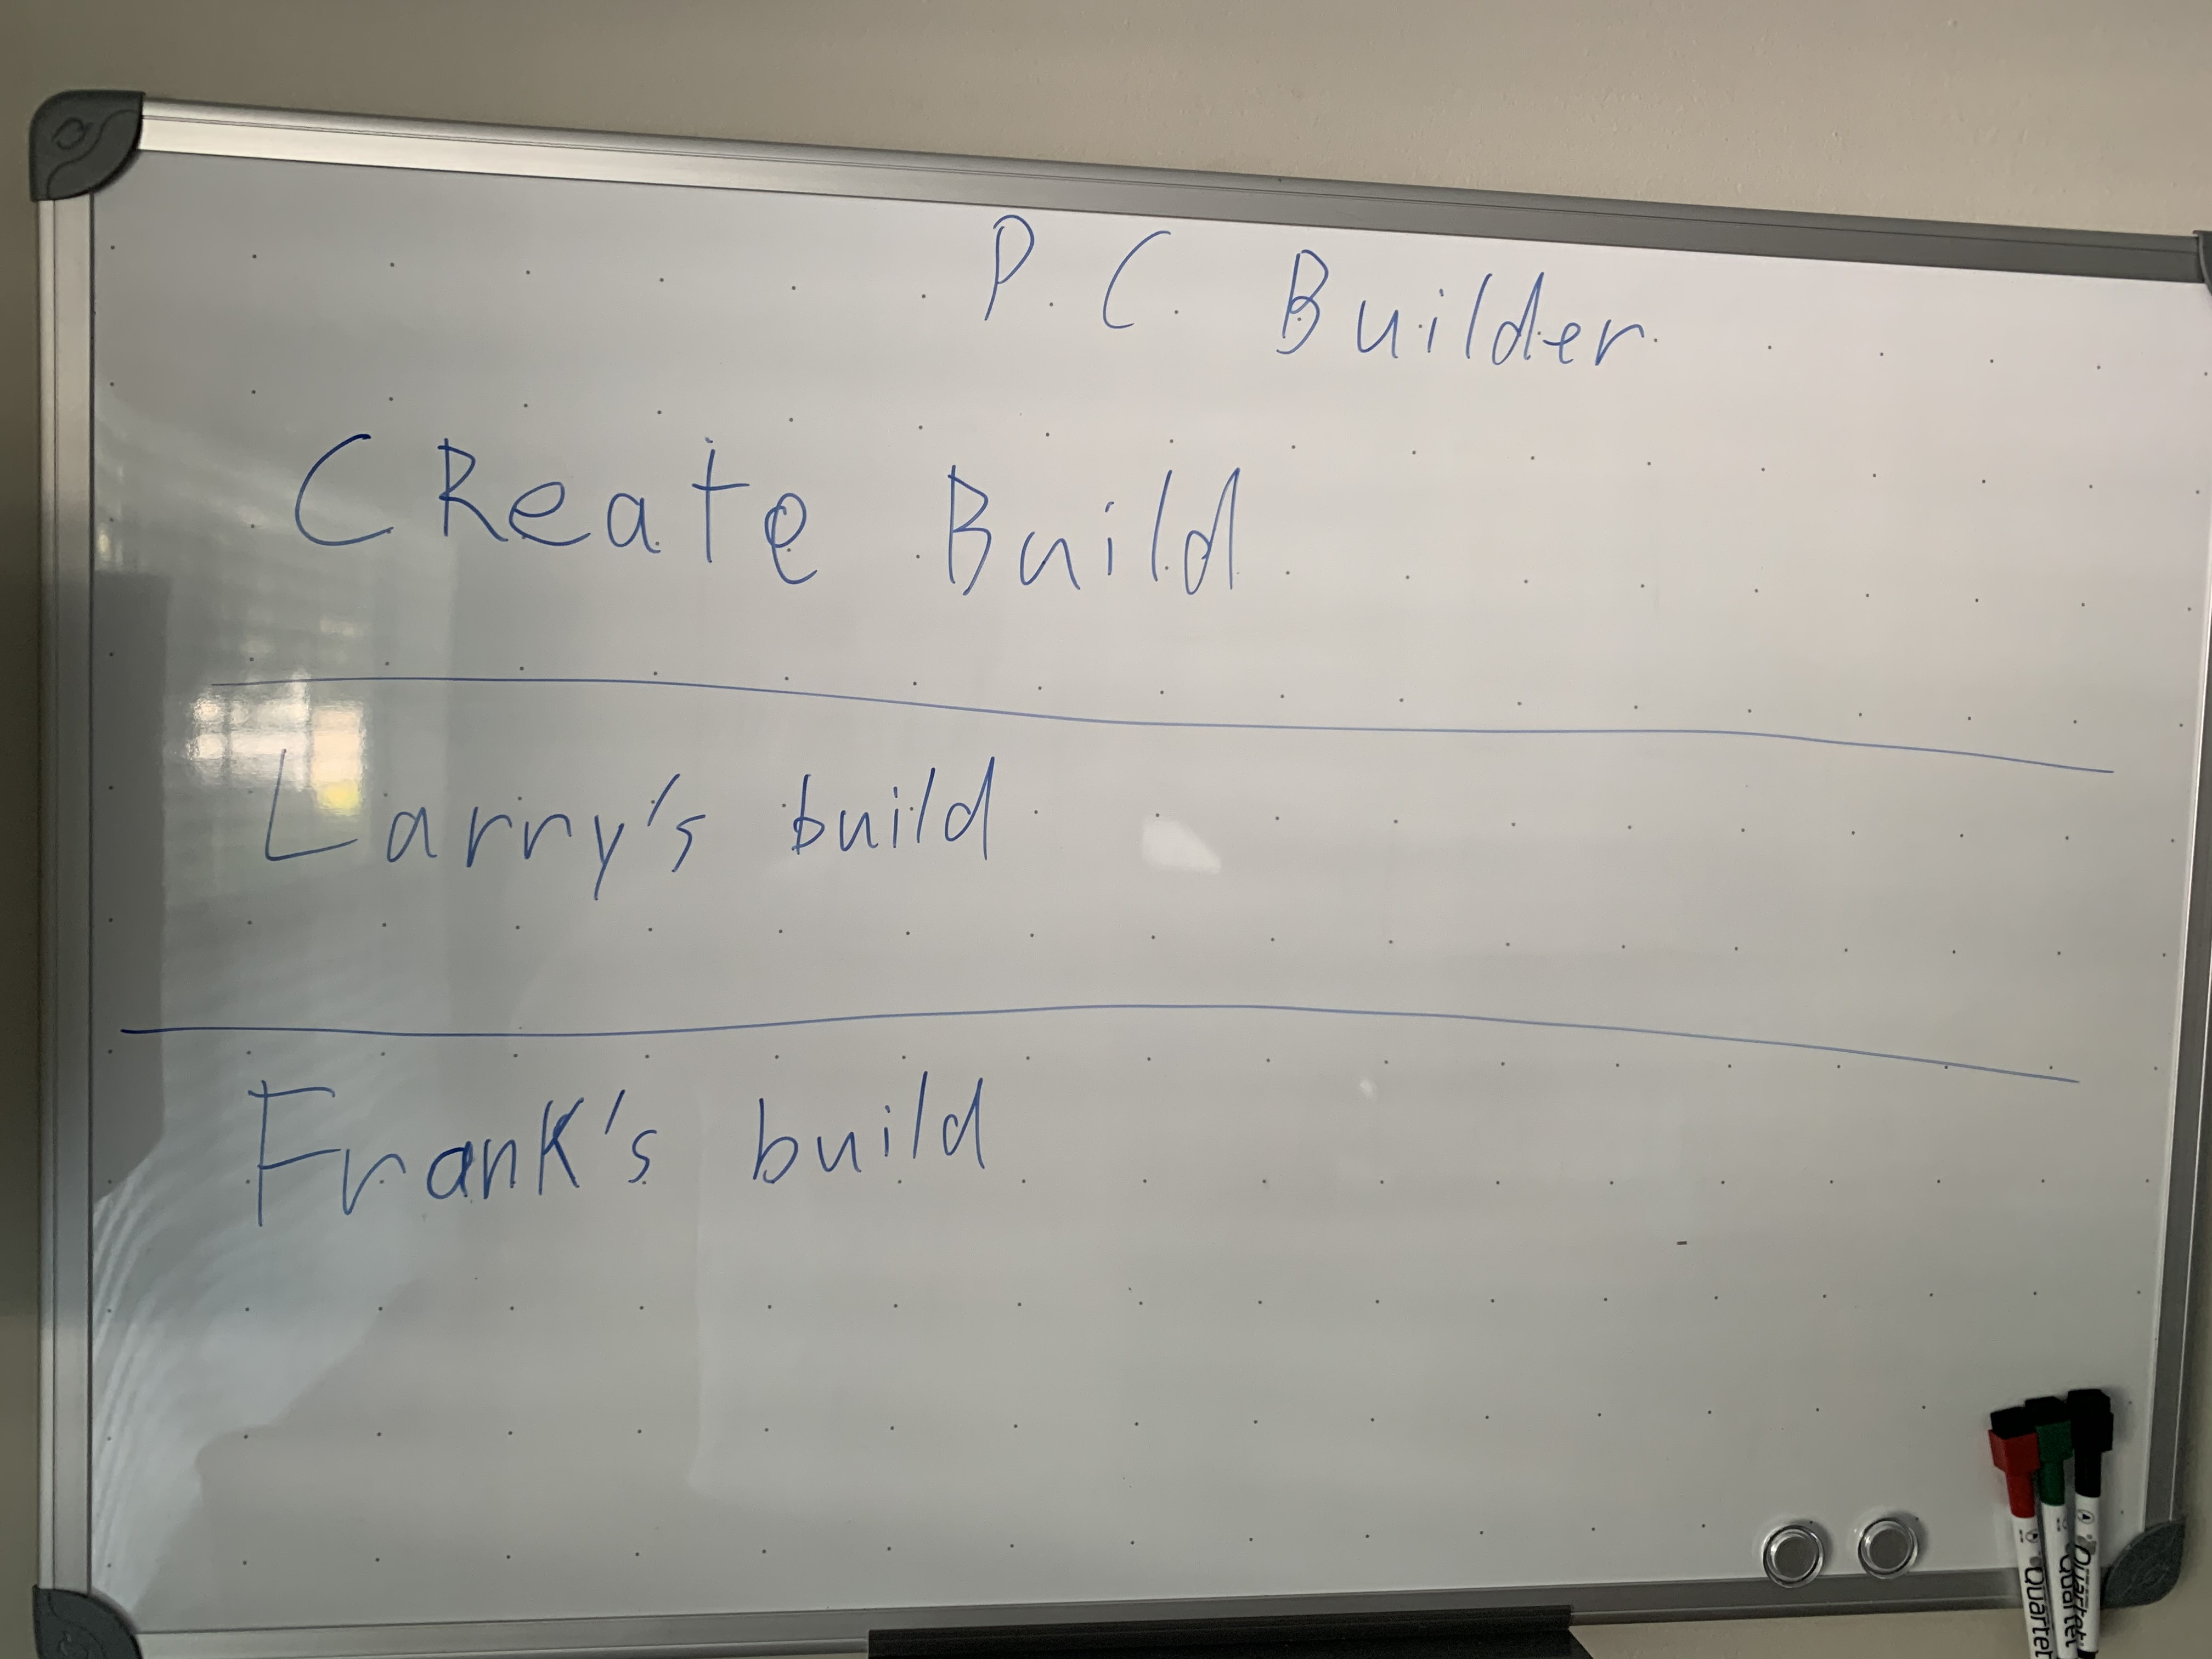 P.C. Builder
CReate Build
Larry's build
FranK's build
Quartet
Quartet
Quartet